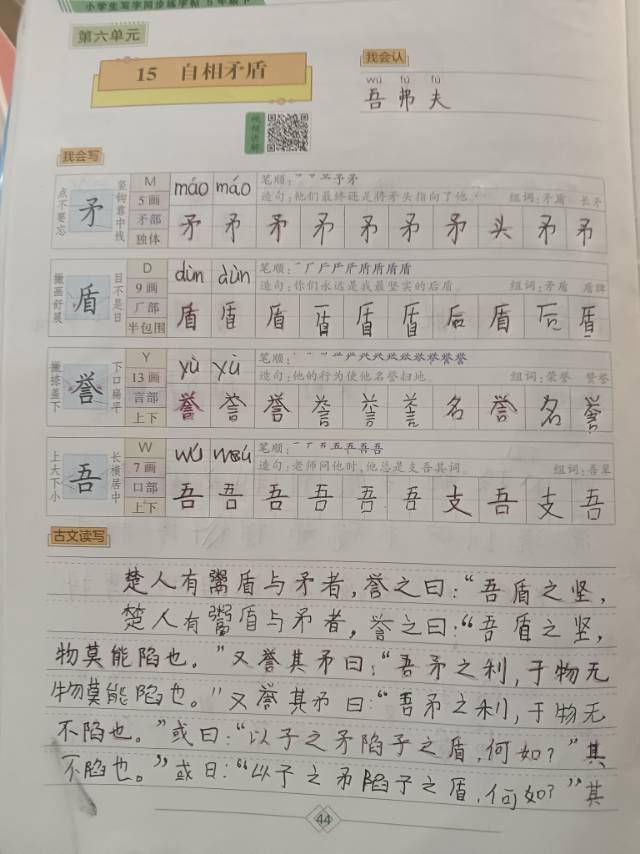 小学生写字同步练字帖 5年级下
第六单元
15 自相矛盾
我会认
wú fú fū
吾 弗 夫
视频讲解
我会写
点不要忘
矛
竖钩靠中线
M
5画
矛部
独体
máo máo
笔顺:
造句:他们最终还是将矛头指向了他。 组词:矛盾 长矛
矛 矛 矛 矛 矛 矛 矛 头 矛 矛
撇画舒展
盾
目不是日
D
9画
厂部
半包围
dùn dùn
笔顺:
造句:你们永远是我最坚实的后盾。 组词:矛盾 盾牌
盾 盾 盾 盾 盾 盾 后 盾 后 盾
撇捺盖下
誉
下口扁平
Y
13画
言部
上下
yù yù
笔顺:
造句:他的行为使他名誉扫地。 组词:荣誉 赞誉
誉 誉 誉 誉 誉 誉 名 誉 名 誉
上大下小
吾
长横居中
W
7画
口部
上下
wú
笔顺:
造句:老师问他时,他总是支吾其词。 组词:吾辈
吾 吾 吾 吾 吾 吾 支 吾 支 吾
古文读写
楚人有鬻盾与矛者,誉之曰:“吾盾之坚,
楚人有鬻盾与矛者,誉之曰:“吾盾之坚,
物莫能陷也。”又誉其矛曰:“吾矛之利,于物无
物莫能陷也。”又誉其矛曰:“吾矛之利,于物无
不陷也。”或曰:“以子之矛陷子之盾,何如?”其
不陷也。”或曰:“以子之矛陷子之盾,何如?”其
44